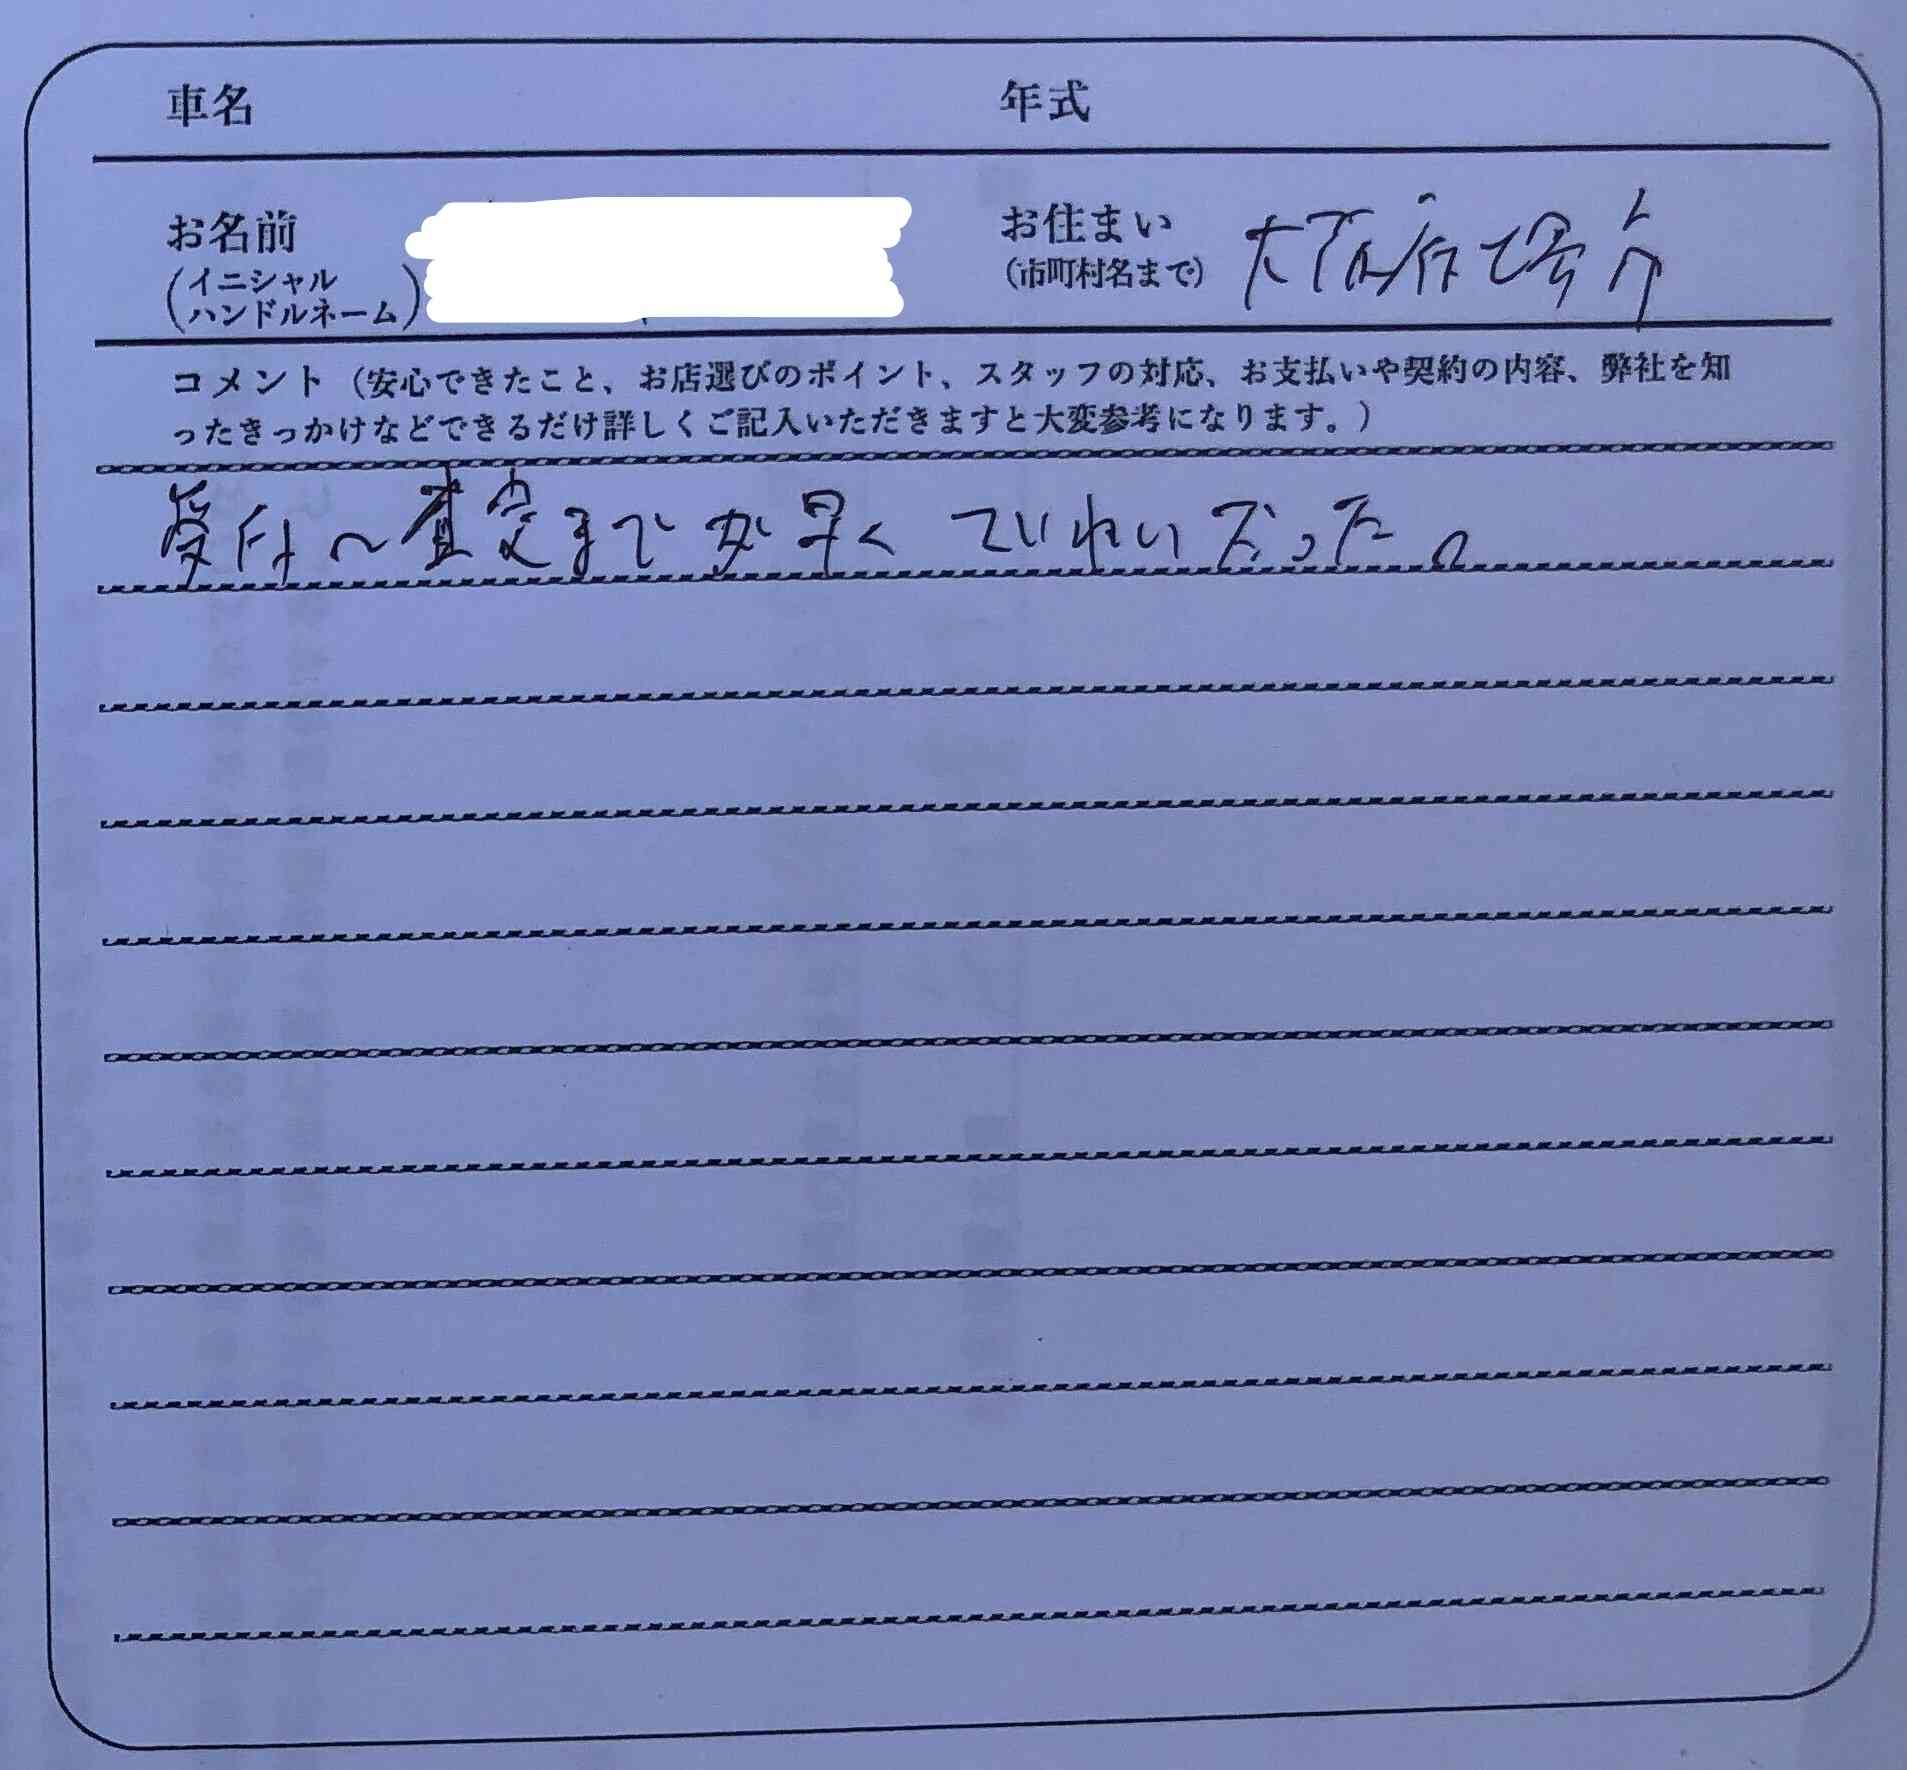 車名 年式
お名前 お住まい 大阪府堺市
(イニシャル (市町村名まで)
ハンドルネーム)
コメント (安心できたこと、お店選びのポイント、スタッフの対応、お支払いや契約の内容、弊社を知
ったきっかけなどできるだけ詳しくご記入いただきますと大変参考になります。)
受付～査定までが早くていねいだった。